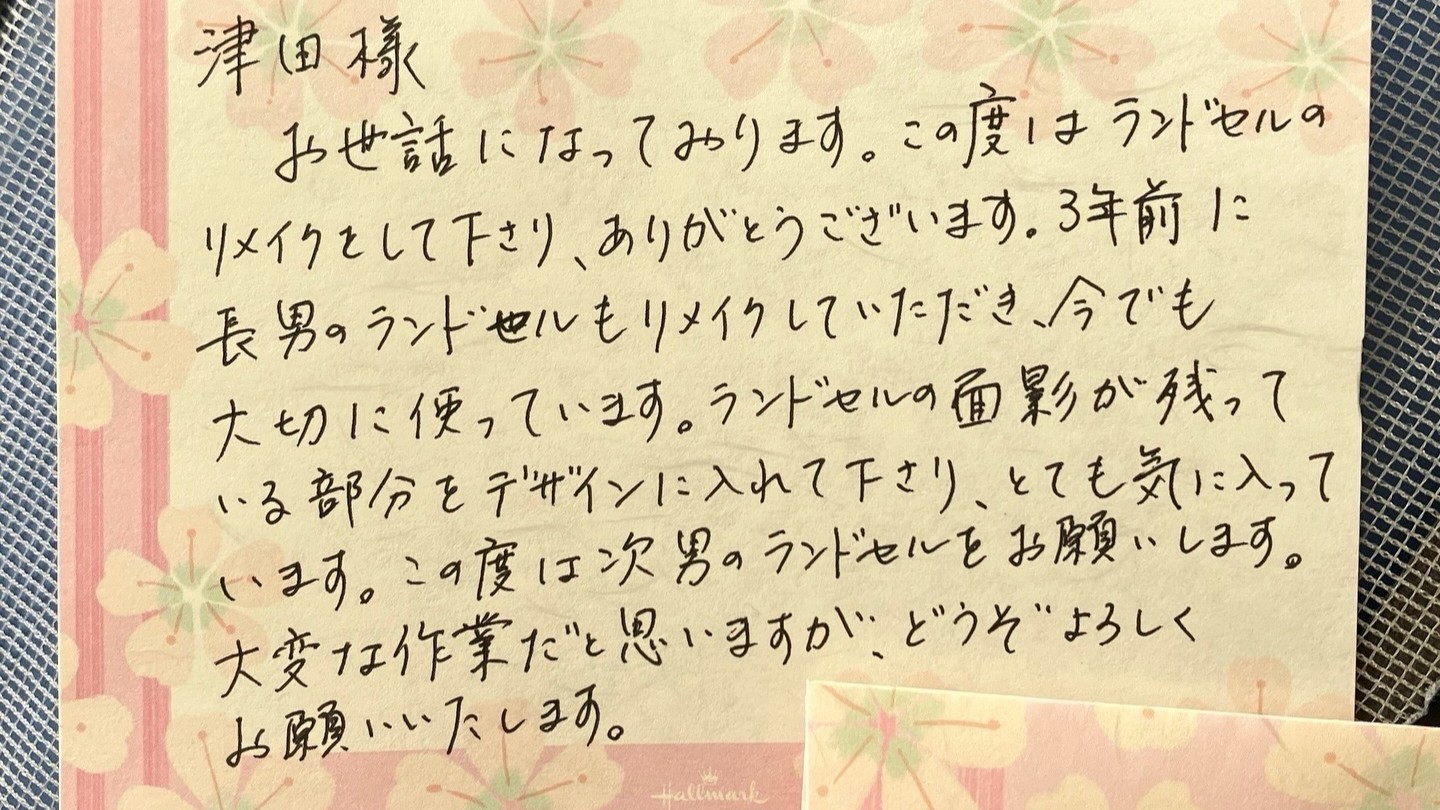 津田様
お世話になっております。この度はランドセルの
リメイクをして下さり、ありがとうございます。3年前に
長男のランドセルもリメイクしていただき、今でも
大切に使っています。ランドセルの面影が残って
いる部分をデザインに入れて下さり、とても気に入って
います。この度は次男のランドセルをお願いします。
大変な作業だと思いますが、どうぞよろしく
お願いいたします。
Hallmark